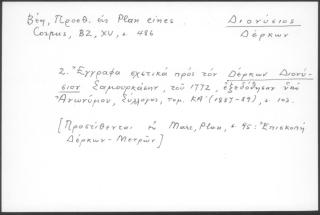 Βέη, Προσθ. εἰς Plan eines
Corpus, BZ, XV, σ. 486
Διονύσιος
Δέρκων
2. Ἔγγραφα σχετικὰ πρὸς τὸν Δέρκων Διονύ-
σιον Σαμουρκάσην, τοῦ 1772, ἐξεδόθησαν ὑπὸ
Ἀνωνύμου, Σύλλογος, τομ. ΚΑ΄ (1887-89), σ. 103.
[Προστίθενται Marc, Plan, σ. 95: Ἐπισκοπὴ
Δέρκων - Μετρῶν]